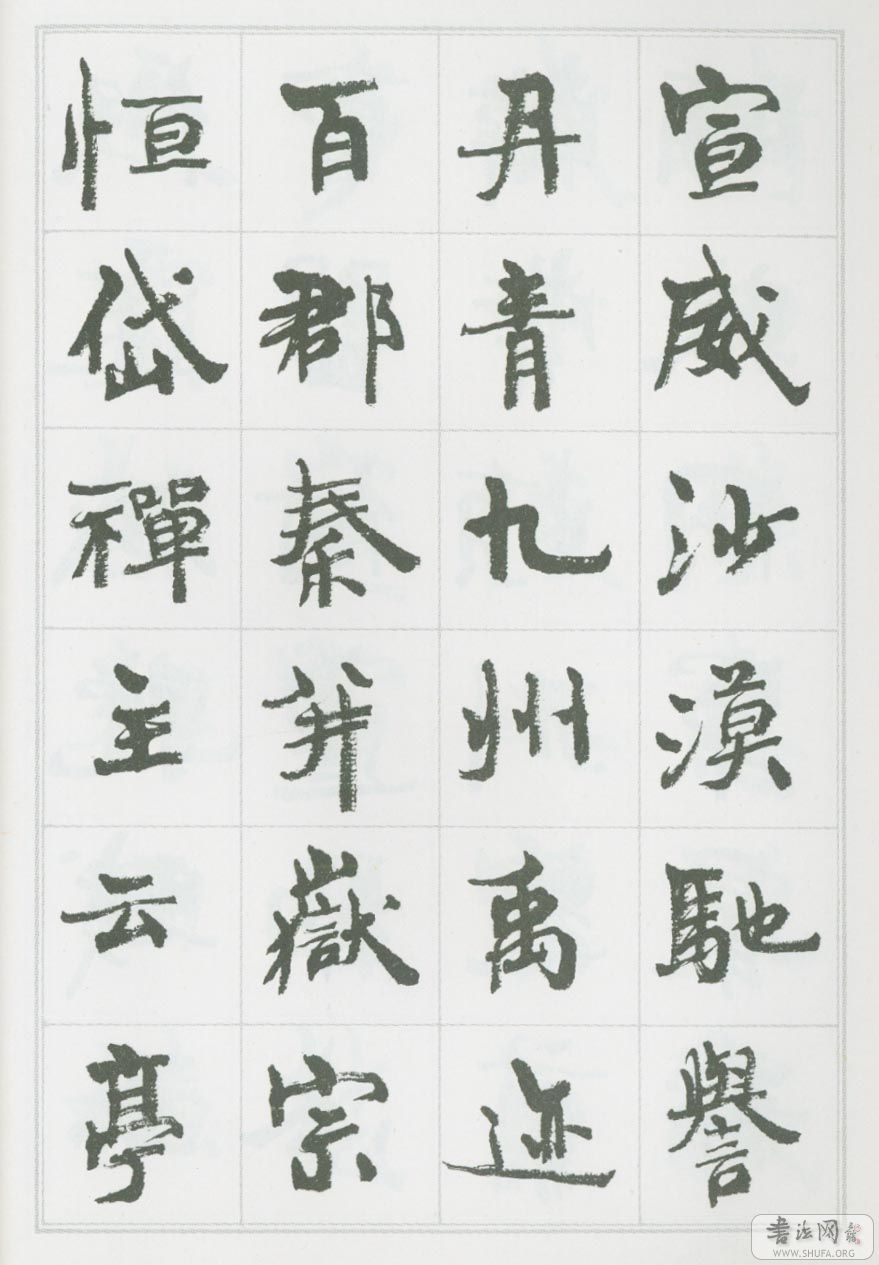 宣威沙漠馳譽
丹青九州禹迹
百郡秦并嶽宗
恒岱禪主云亭
書法网
WWW.SHUFA.ORG